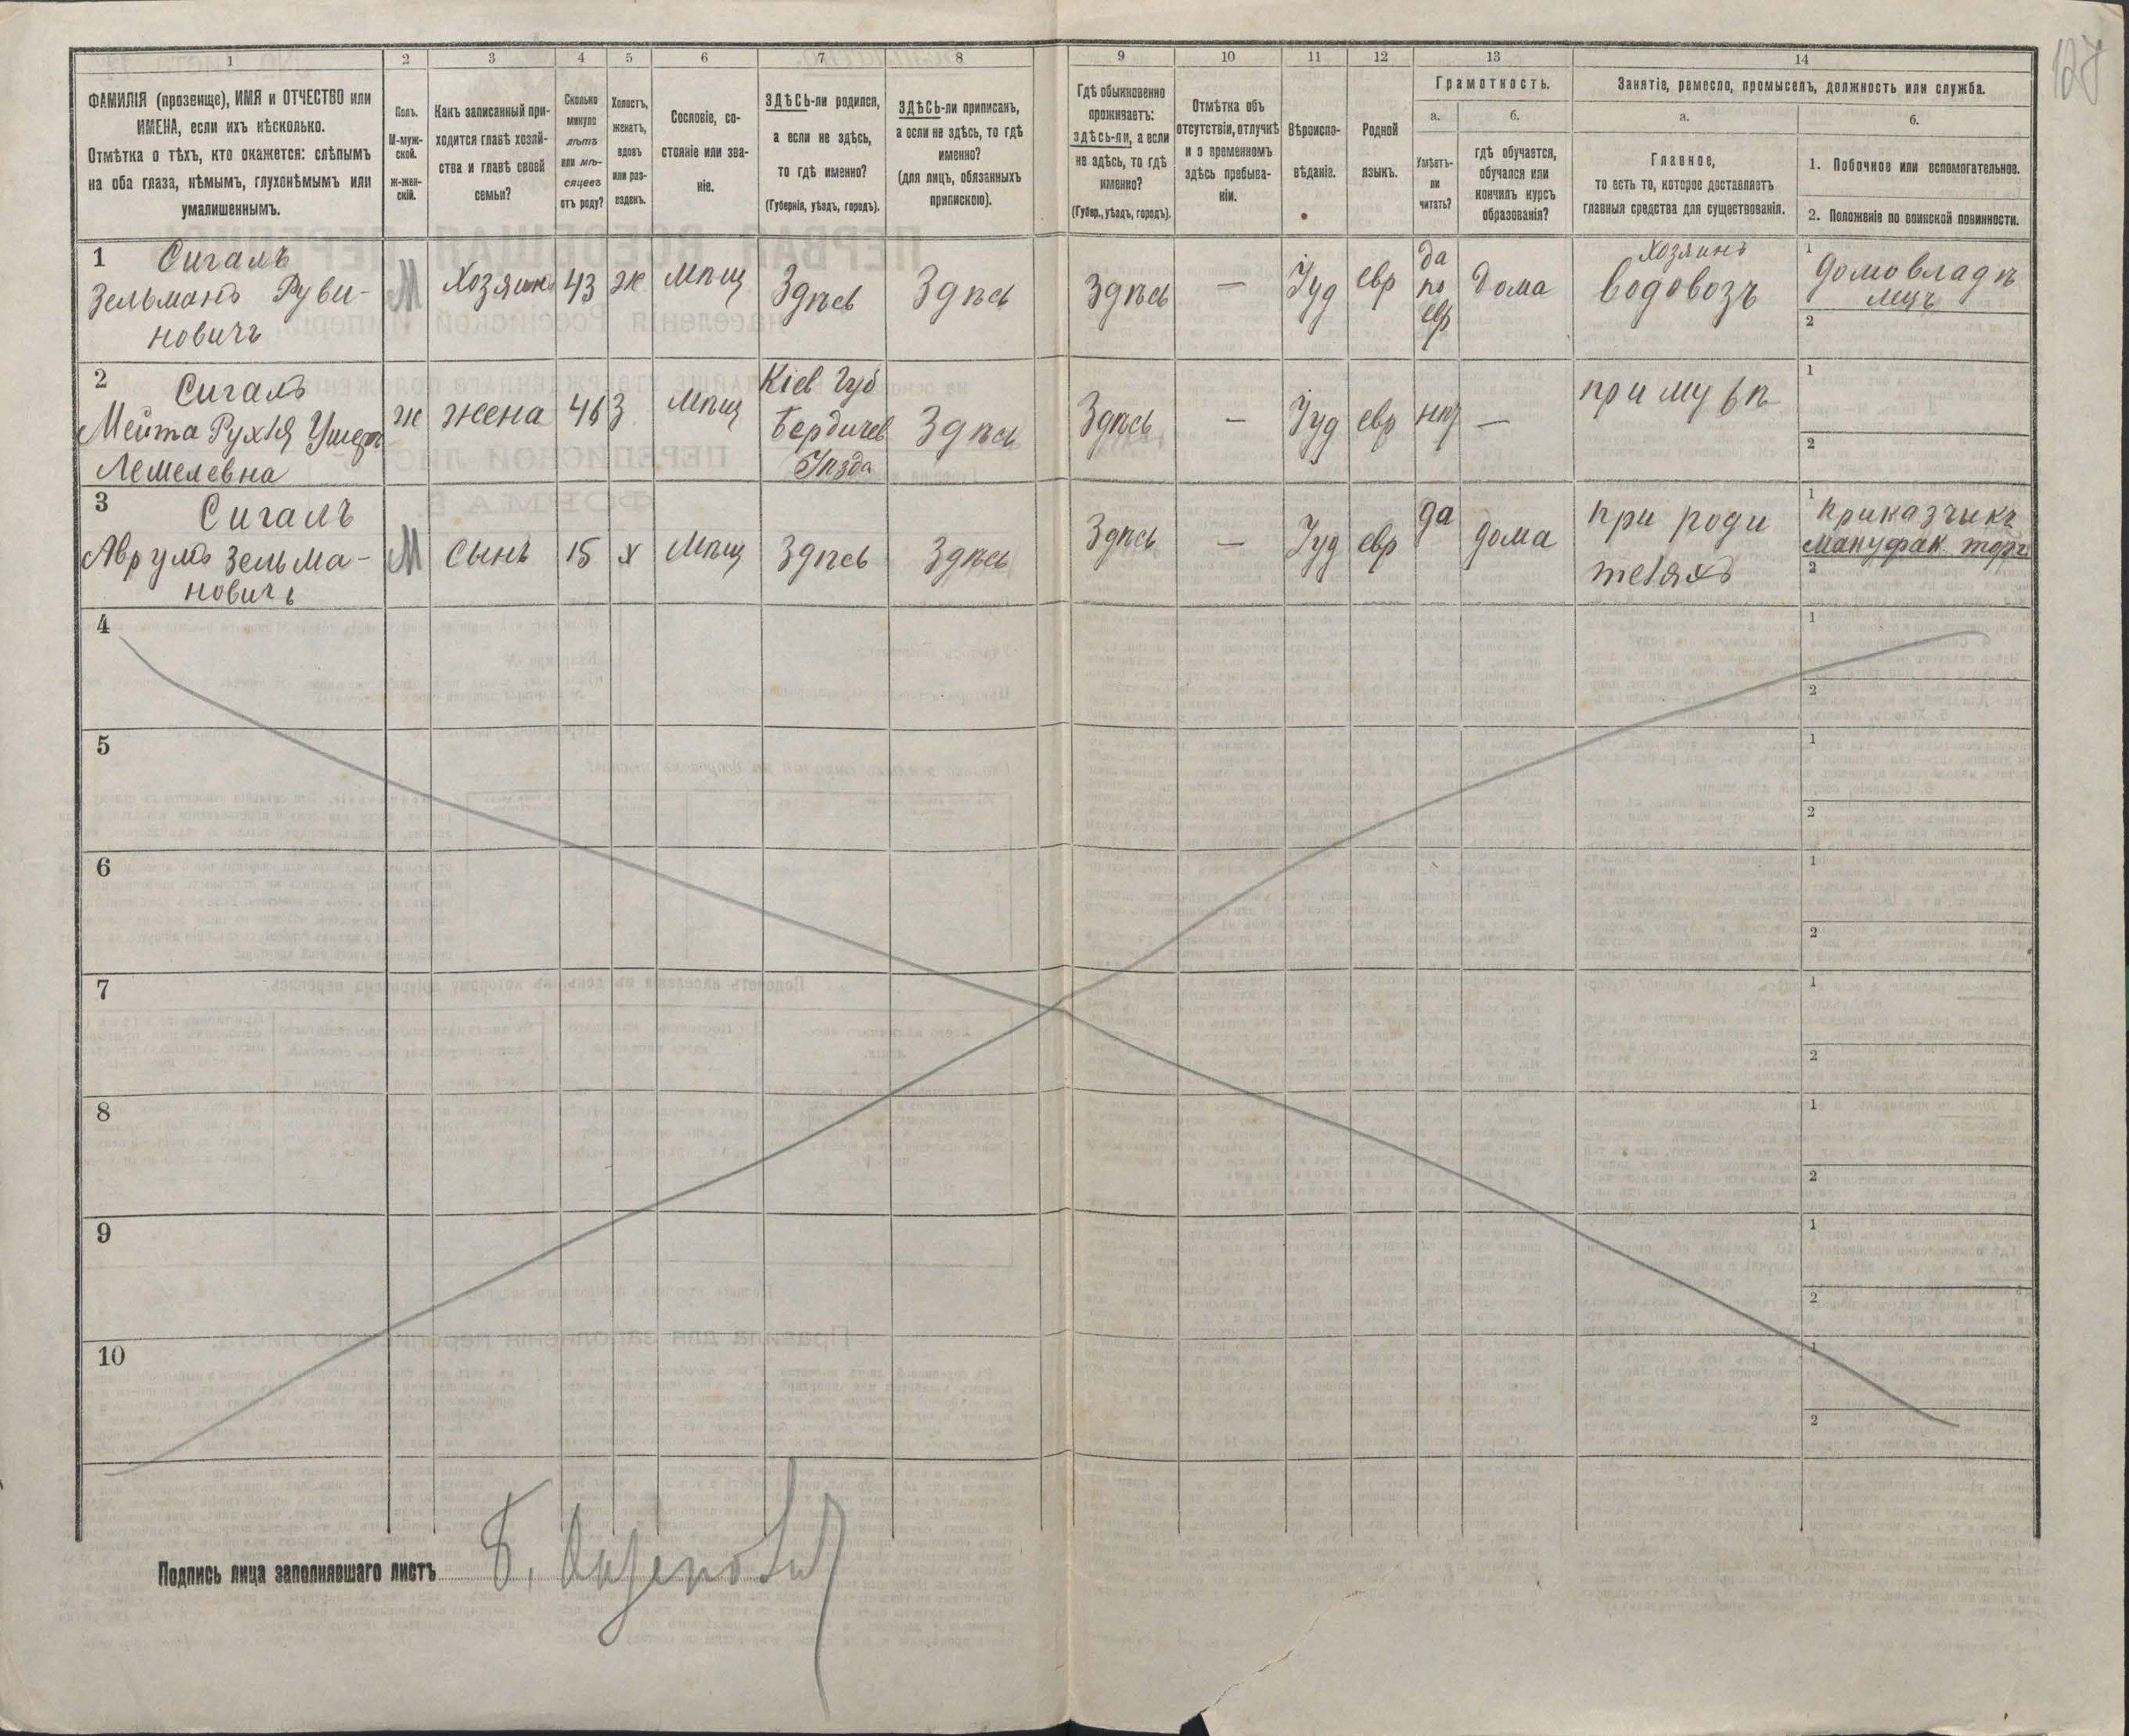 127
1
2
3
4
5
6
7
8
9
10
11
12
13
14
ФАМИЛІЯ (прозвище), ИМЯ и ОТЧЕСТВО или
ИМЕНА, если ихъ нѣсколько.
Отмѣтка о тѣхъ, кто окажется: слѣпымъ
на оба глаза, нѣмымъ, глухонѣмымъ или
умалишеннымъ.
Полъ.
М-муж-
ской.
ж-жен-
скій.
Какъ записанный при-
ходится главѣ хозяй-
ства и главѣ своей
семьи?
Сколько
минуло
лѣтъ
или мѣ-
сяцевъ
отъ роду?
Холостъ,
женатъ,
вдовъ
или раз-
веденъ.
Сословіе, со-
стояніе или зва-
ніе.
ЗДѢСЬ-ли родился,
а если не здѣсь,
то гдѣ именно?
(Губернія, уѣздъ, городъ).
ЗДѢСЬ-ли приписанъ,
а если не здѣсь, то гдѣ
именно?
(для лицъ, обязанныхъ
припискою).
Гдѣ обыкновенно
проживаетъ:
здѣсь-ли, а если
не здѣсь, то гдѣ
именно?
(Губер., уѣздъ, городъ).
Отмѣтка объ
отсутствіи, отлучкѣ
и о временномъ
здѣсь пребыва-
ніи.
Вѣроиспо-
вѣданіе.
Родной
языкъ.
Грамотность.
а.
Умѣетъ-
ли
читать?
б.
гдѣ обучается,
обучался или
кончилъ курсъ
образованія?
Занятіе, ремесло, промыселъ, должность или служба.
а.
Главное,
то есть то, которое доставляетъ
главныя средства для существованія.
б.
1. Побочное или вспомогательное.
2. Положеніе по воинской повинности.
1
Сигалъ
Зельманъ Руви-
новичъ
М
Хозяинъ
43
ж
Мѣщ
Здѣсь
Здѣсь
Здѣсь
—
Іуд
евр
да
по
евр
дома
Хозяинъ
водовозъ
1
домовладѣ
лецъ
2
2
Сигалъ
Мейта Рухля
Лемелевна
ж
жена
46
З
Мѣщ
Кіев Губ
Бердичев
Уѣзда
Здѣсь
Здѣсь
—
Іуд
евр
нѣт
—
при мужѣ
1
2
3
Сигалъ
Аврумъ Зельма-
новичъ
М
сынъ
15
х
Мѣщ
Здѣсь
Здѣсь
Здѣсь
—
Іуд
евр
да
дома
при роди
теляхъ
1
приказчикъ
мануфак. торг
2
4
1
2
5
1
2
6
1
2
7
1
2
8
1
2
9
1
2
10
1
2
Подпись лица заполнявшаго листъ